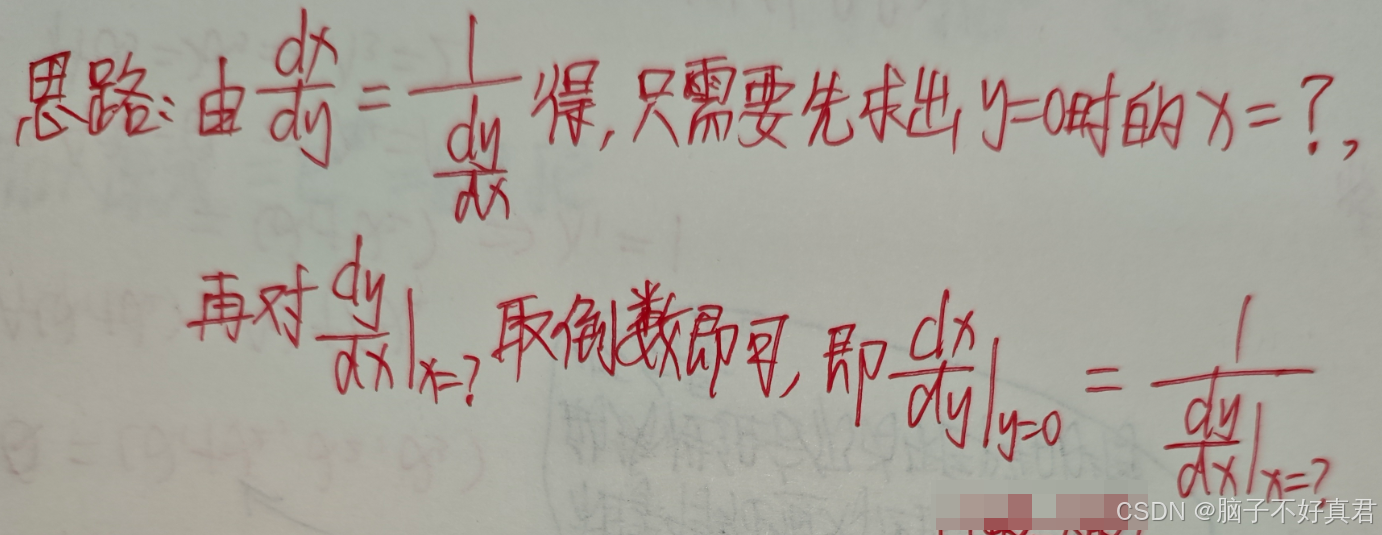 思路:由dx/dy=1/(dy/dx)得,只需要先求出y=0时的x=?,
再对dy/dx|x=?取倒数即可,即dx/dy|y=0=1/(dy/dx|x=?)
CSDN @脑子不好真君